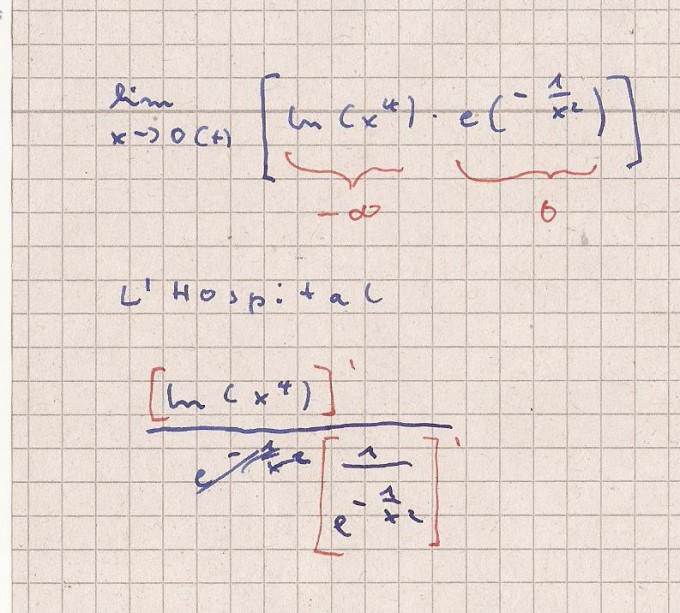 lim x→0(+) [ ln(x⁴) · e(-1/x²) ]
-∞ 0
L'Hospital
[ln(x⁴)]'
[1/e^(-1/x²)]'